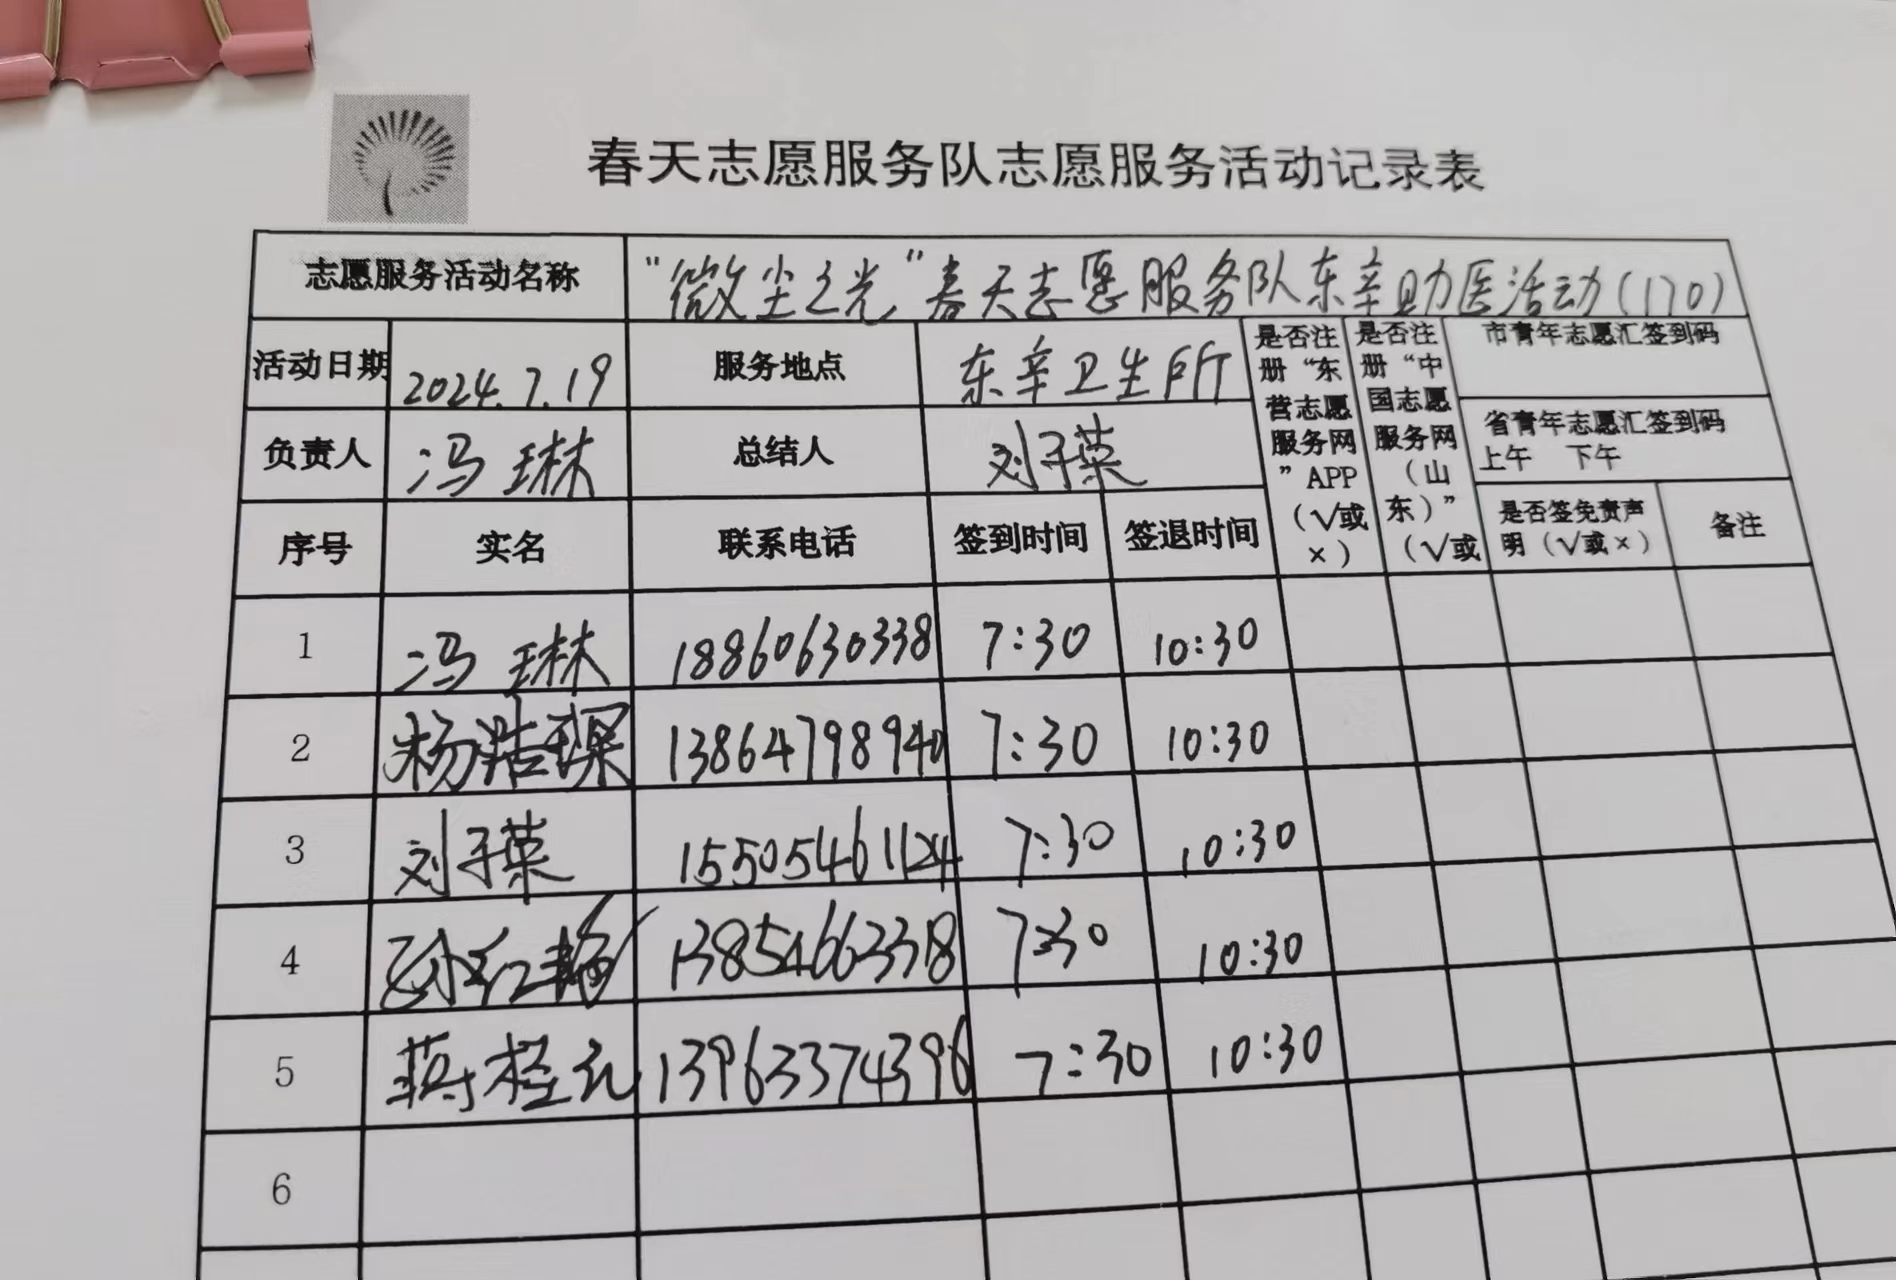 春天志愿服务队志愿服务活动记录表
志愿服务活动名称 “微尘之光”春天志愿服务队东辛助医活动(170)
活动日期 2024.7.19 服务地点 东辛卫生所
负责人 冯琳 总结人 刘子菜
是否注册“东营志愿服务网”APP（√或×）
是否注册“中国志愿服务网（山东）”（√或
市青年志愿汇签到码
省青年志愿汇签到码
上午 下午
序号 实名 联系电话 签到时间 签退时间 是否签免责声明（√或×） 备注
1 冯琳 18860630338 7:30 10:30
2 杨浩琛 13864798940 7:30 10:30
3 刘子菜 15505461124 7:30 10:30
4 孙红梅 13854662338 7:30 10:30
5 蒋桂元 13963374396 7:30 10:30
6